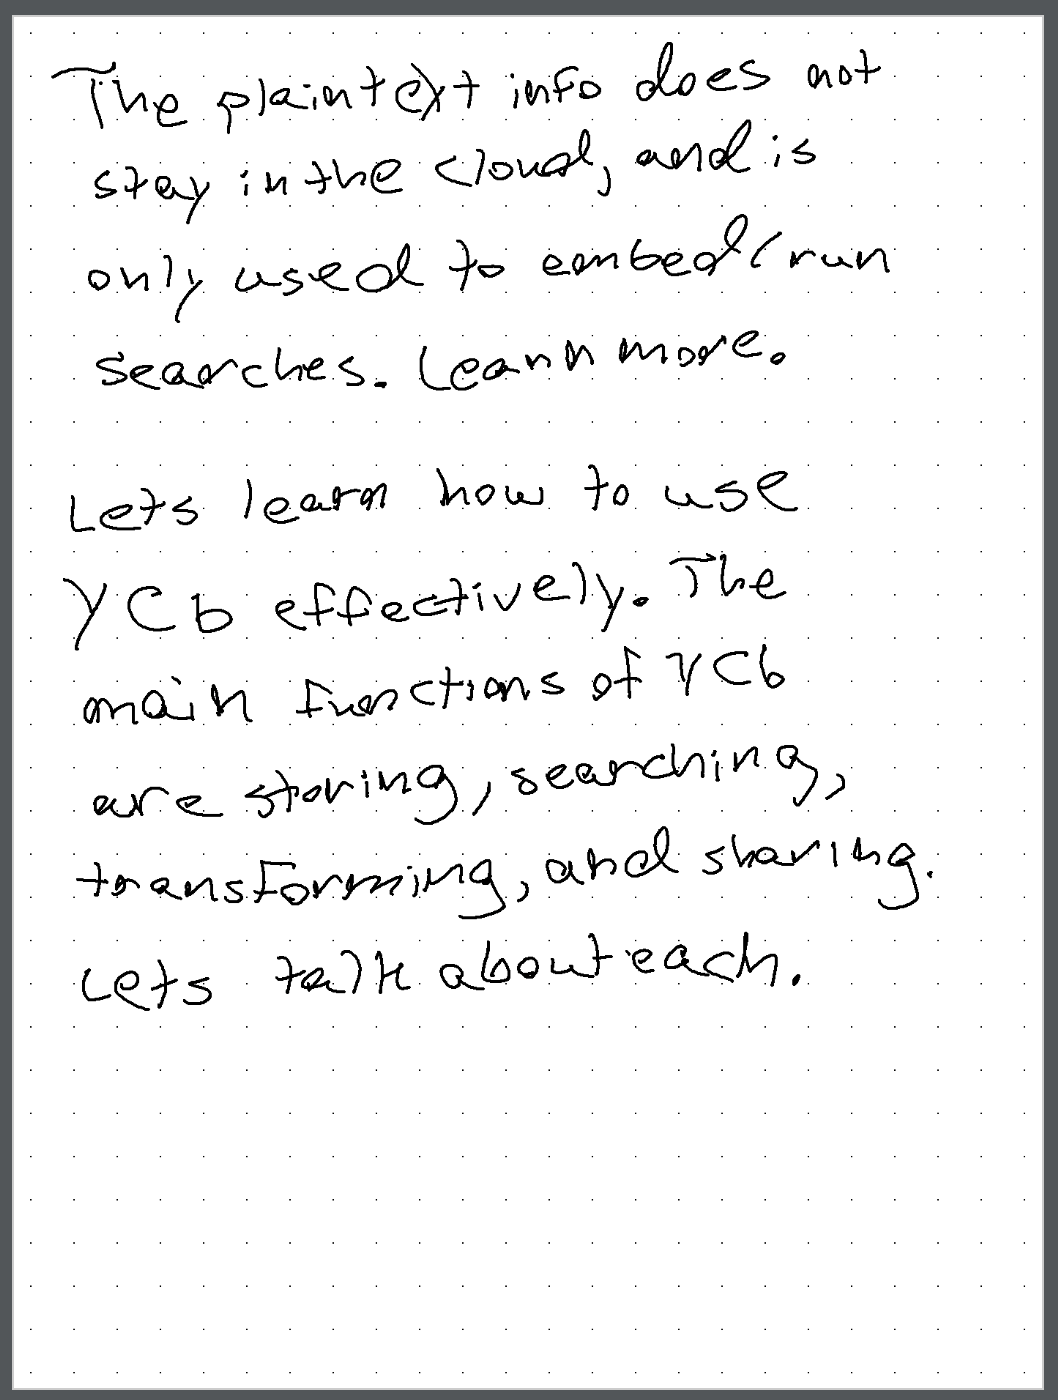 The plaintext info does not
stay in the cloud, and is
only used to embed/run
searches. Learn more.
Lets learn how to use
YCb effectively. The
main functions of YCb
are storing, searching,
transforming, and sharing.
Lets talk about each.